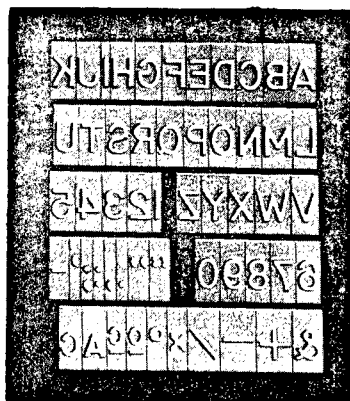 ABCDEFGHIJK
LMNOPQRSTU
VWXYZ 12345
67890
& + – /